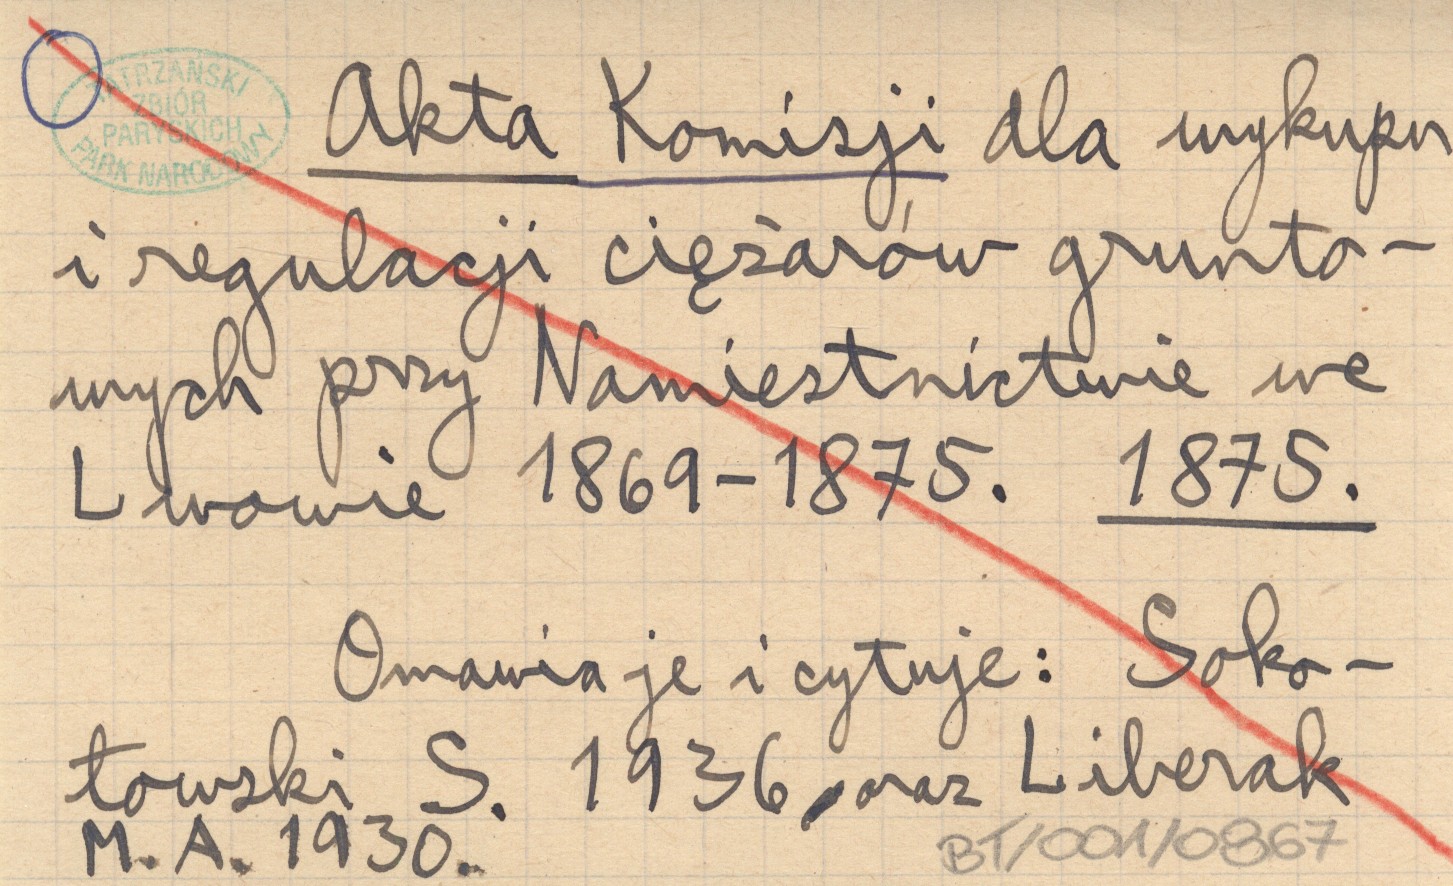 TATRZAŃSKI
ZBIÓR
PARYSKICH
PARK NARODOWY
Akta Komisji dla wykupu
i regulacji ciężarów grunto-
wych przy Namiestnictwie we
Lwowie 1869-1875. 1875.
Omawia je i cytuje: Soko-
łowski S. 1936, oraz Liberak
M. A. 1930.
BT/001/0867